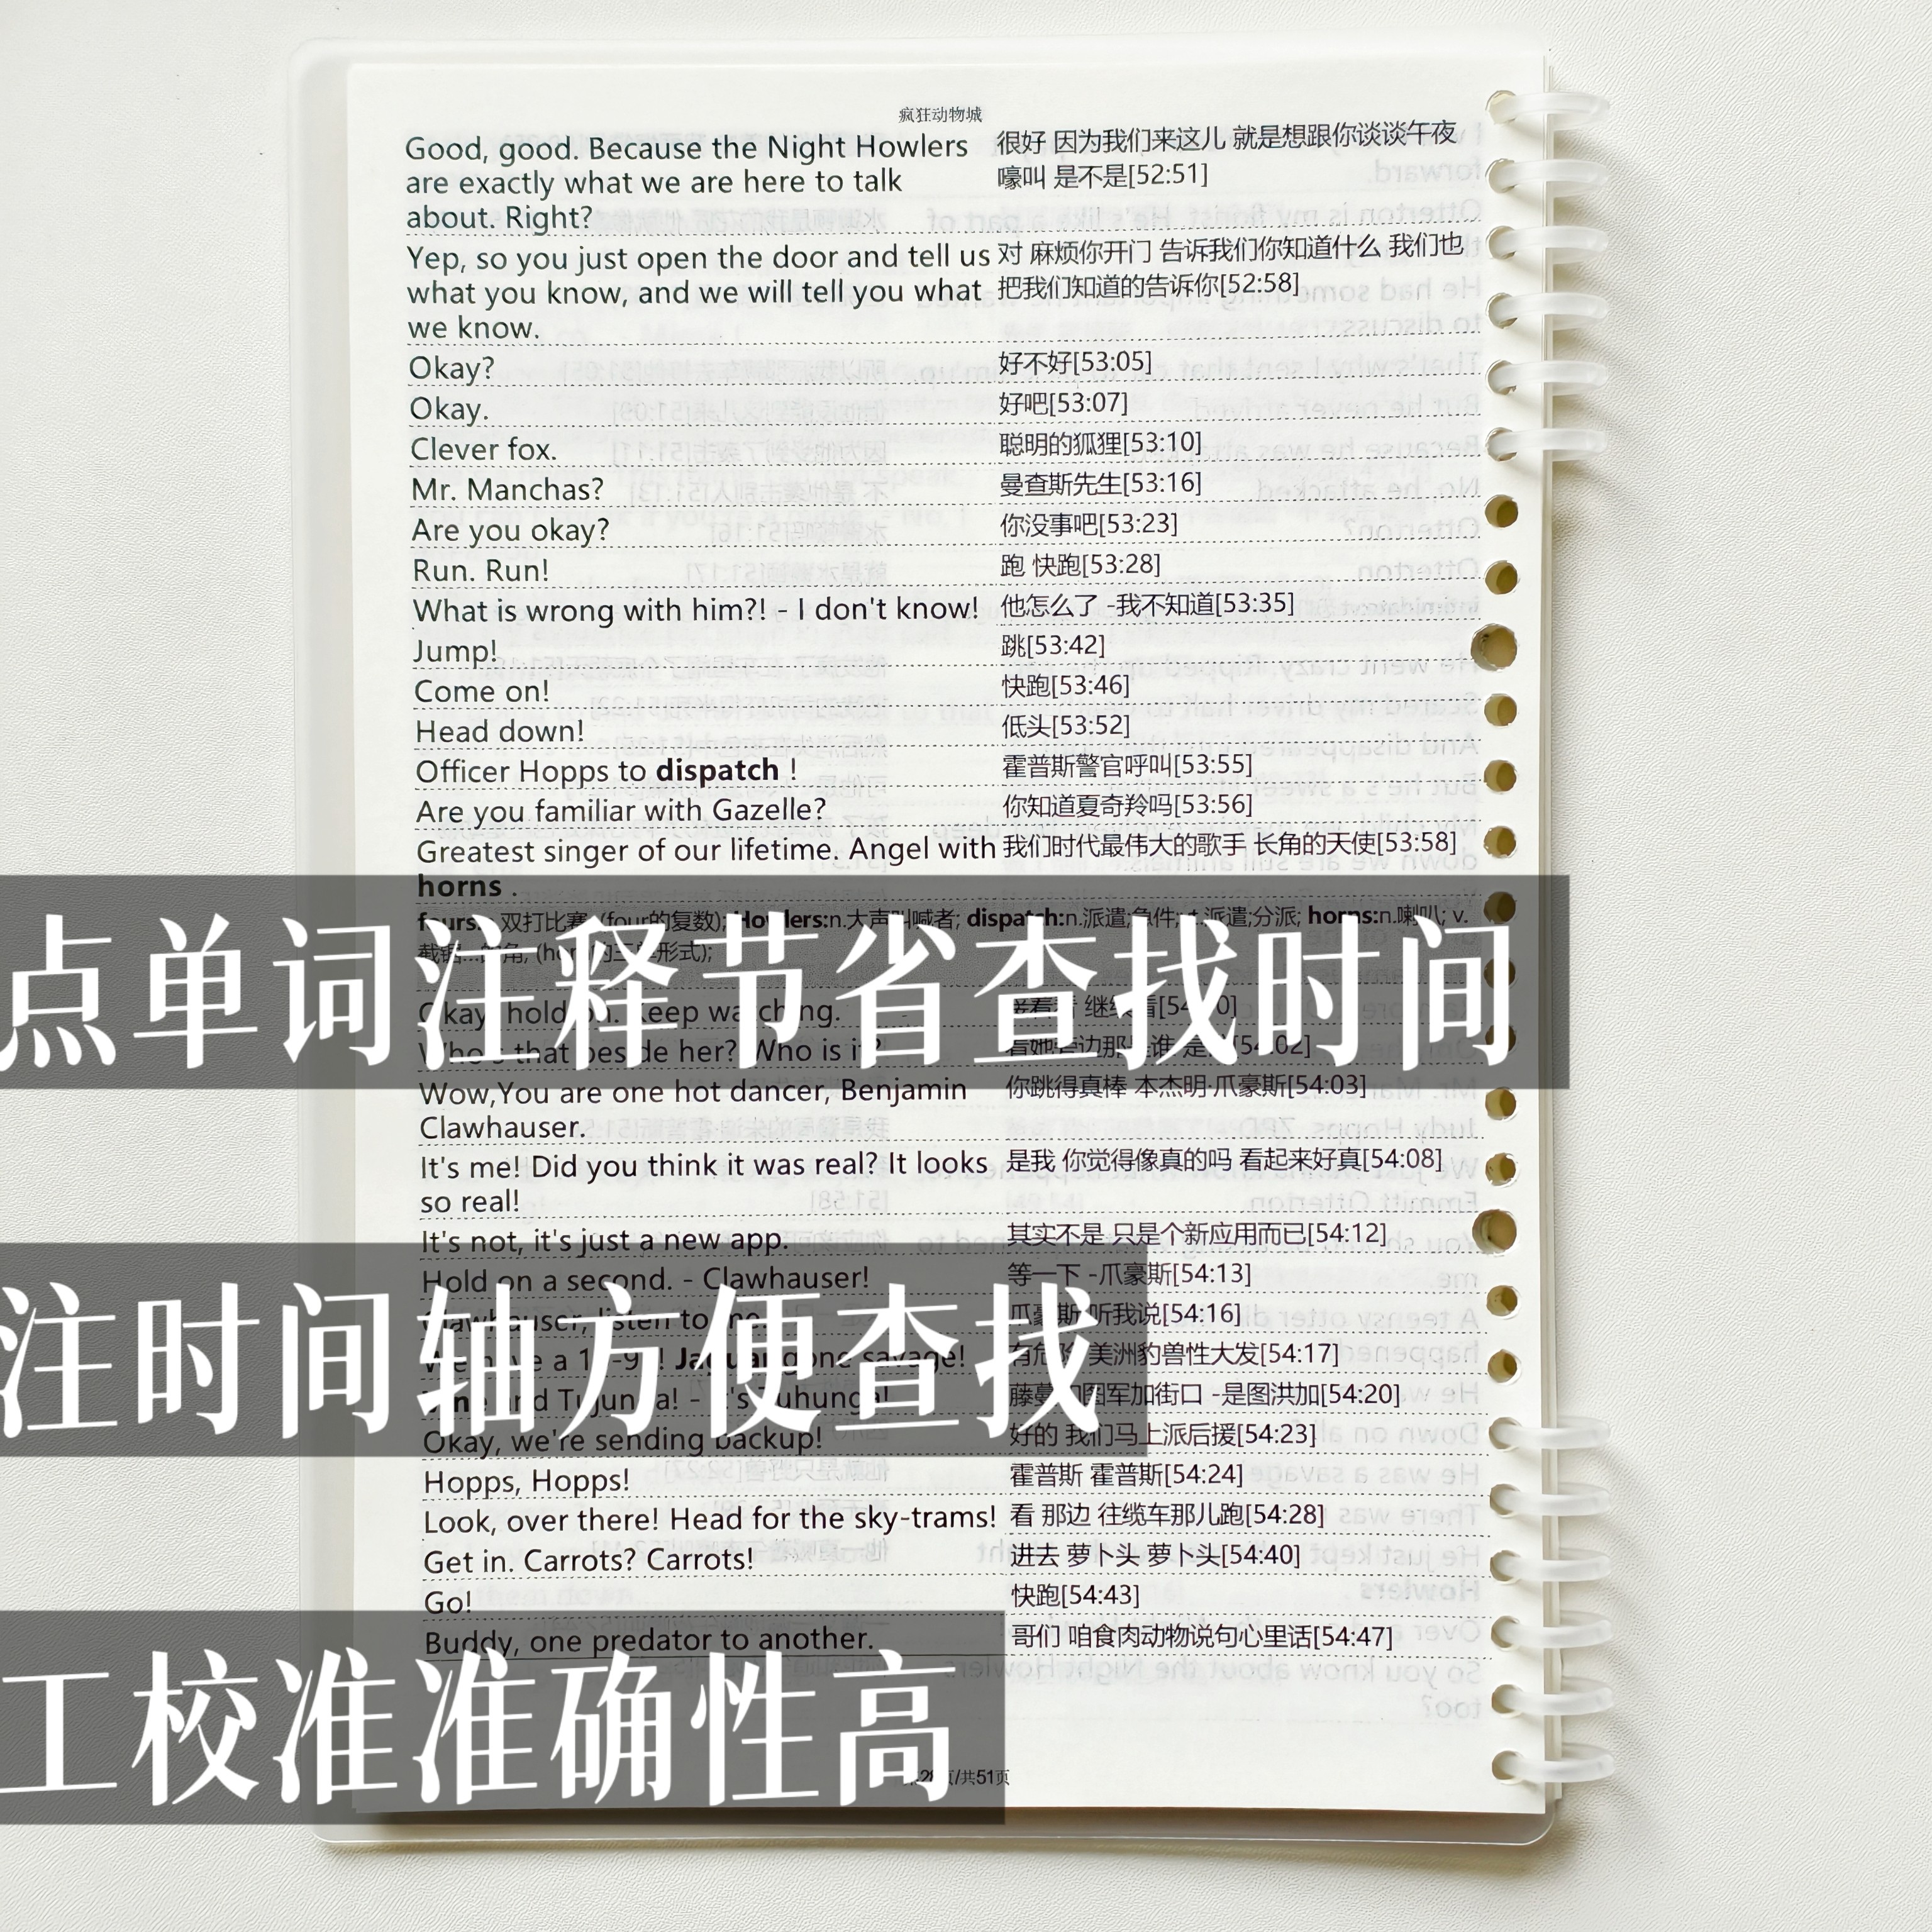 疯狂动物城
Good, good. Because the Night Howlers
are exactly what we are here to talk
about. Right?
很好 因为我们来这儿 就是想跟你谈谈午夜
嚎叫 是不是[52:51]
Yep, so you just open the door and tell us
what you know, and we will tell you what
we know.
对 麻烦你开门 告诉我们你知道什么 我们也
把我们知道的告诉你[52:58]
Okay?
好不好[53:05]
Okay.
好吧[53:07]
Clever fox.
聪明的狐狸[53:10]
Mr. Manchas?
曼查斯先生[53:16]
Are you okay?
你没事吧[53:23]
Run. Run!
跑 快跑[53:28]
What is wrong with him?! - I don't know!
他怎么了 -我不知道[53:35]
Jump!
跳[53:42]
Come on!
快跑[53:46]
Head down!
低头[53:52]
Officer Hopps to dispatch !
霍普斯警官呼叫[53:55]
Are you familiar with Gazelle?
你知道夏奇羚吗[53:56]
Greatest singer of our lifetime. Angel with
horns .
我们时代最伟大的歌手 长角的天使[53:58]
双打比赛; (four的复数); Howlers:n.大声叫喊者; dispatch:n.派遣;急件; 派遣;分派; horns:n.喇叭; v.
点单词注释节省查找时间
hold Keep watching.
继续看
that beside her? Who is it?
看她旁边那是谁 [54:02]
Wow,You are one hot dancer, Benjamin
Clawhauser.
你跳得真棒 本杰明·爪豪斯[54:03]
It's me! Did you think it was real? It looks
so real!
是我 你觉得像真的吗 看起来好真[54:08]
It's not, it's just a new app.
其实不是 只是个新应用而已[54:12]
Hold on a second. - Clawhauser!
等一下 -爪豪斯[54:13]
Clawhauser, listen to me.
爪豪斯 听我说[54:16]
We have a Jaguar gone savage!
有危险 美洲豹兽性大发[54:17]
注时间轴方便查找
and Tujunga! - It's Tuhunga!
-是图洪加[54:20]
Okay, we're sending backup!
好的 我们马上派后援[54:23]
Hopps, Hopps!
霍普斯 霍普斯[54:24]
Look, over there! Head for the sky-trams!
看 那边 往缆车那儿跑[54:28]
Get in. Carrots? Carrots!
进去 萝卜头 萝卜头[54:40]
Go!
快跑[54:43]
Buddy, one predator to another.
哥们 咱食肉动物说句心里话[54:47]
工校准准确性高
页/共51页